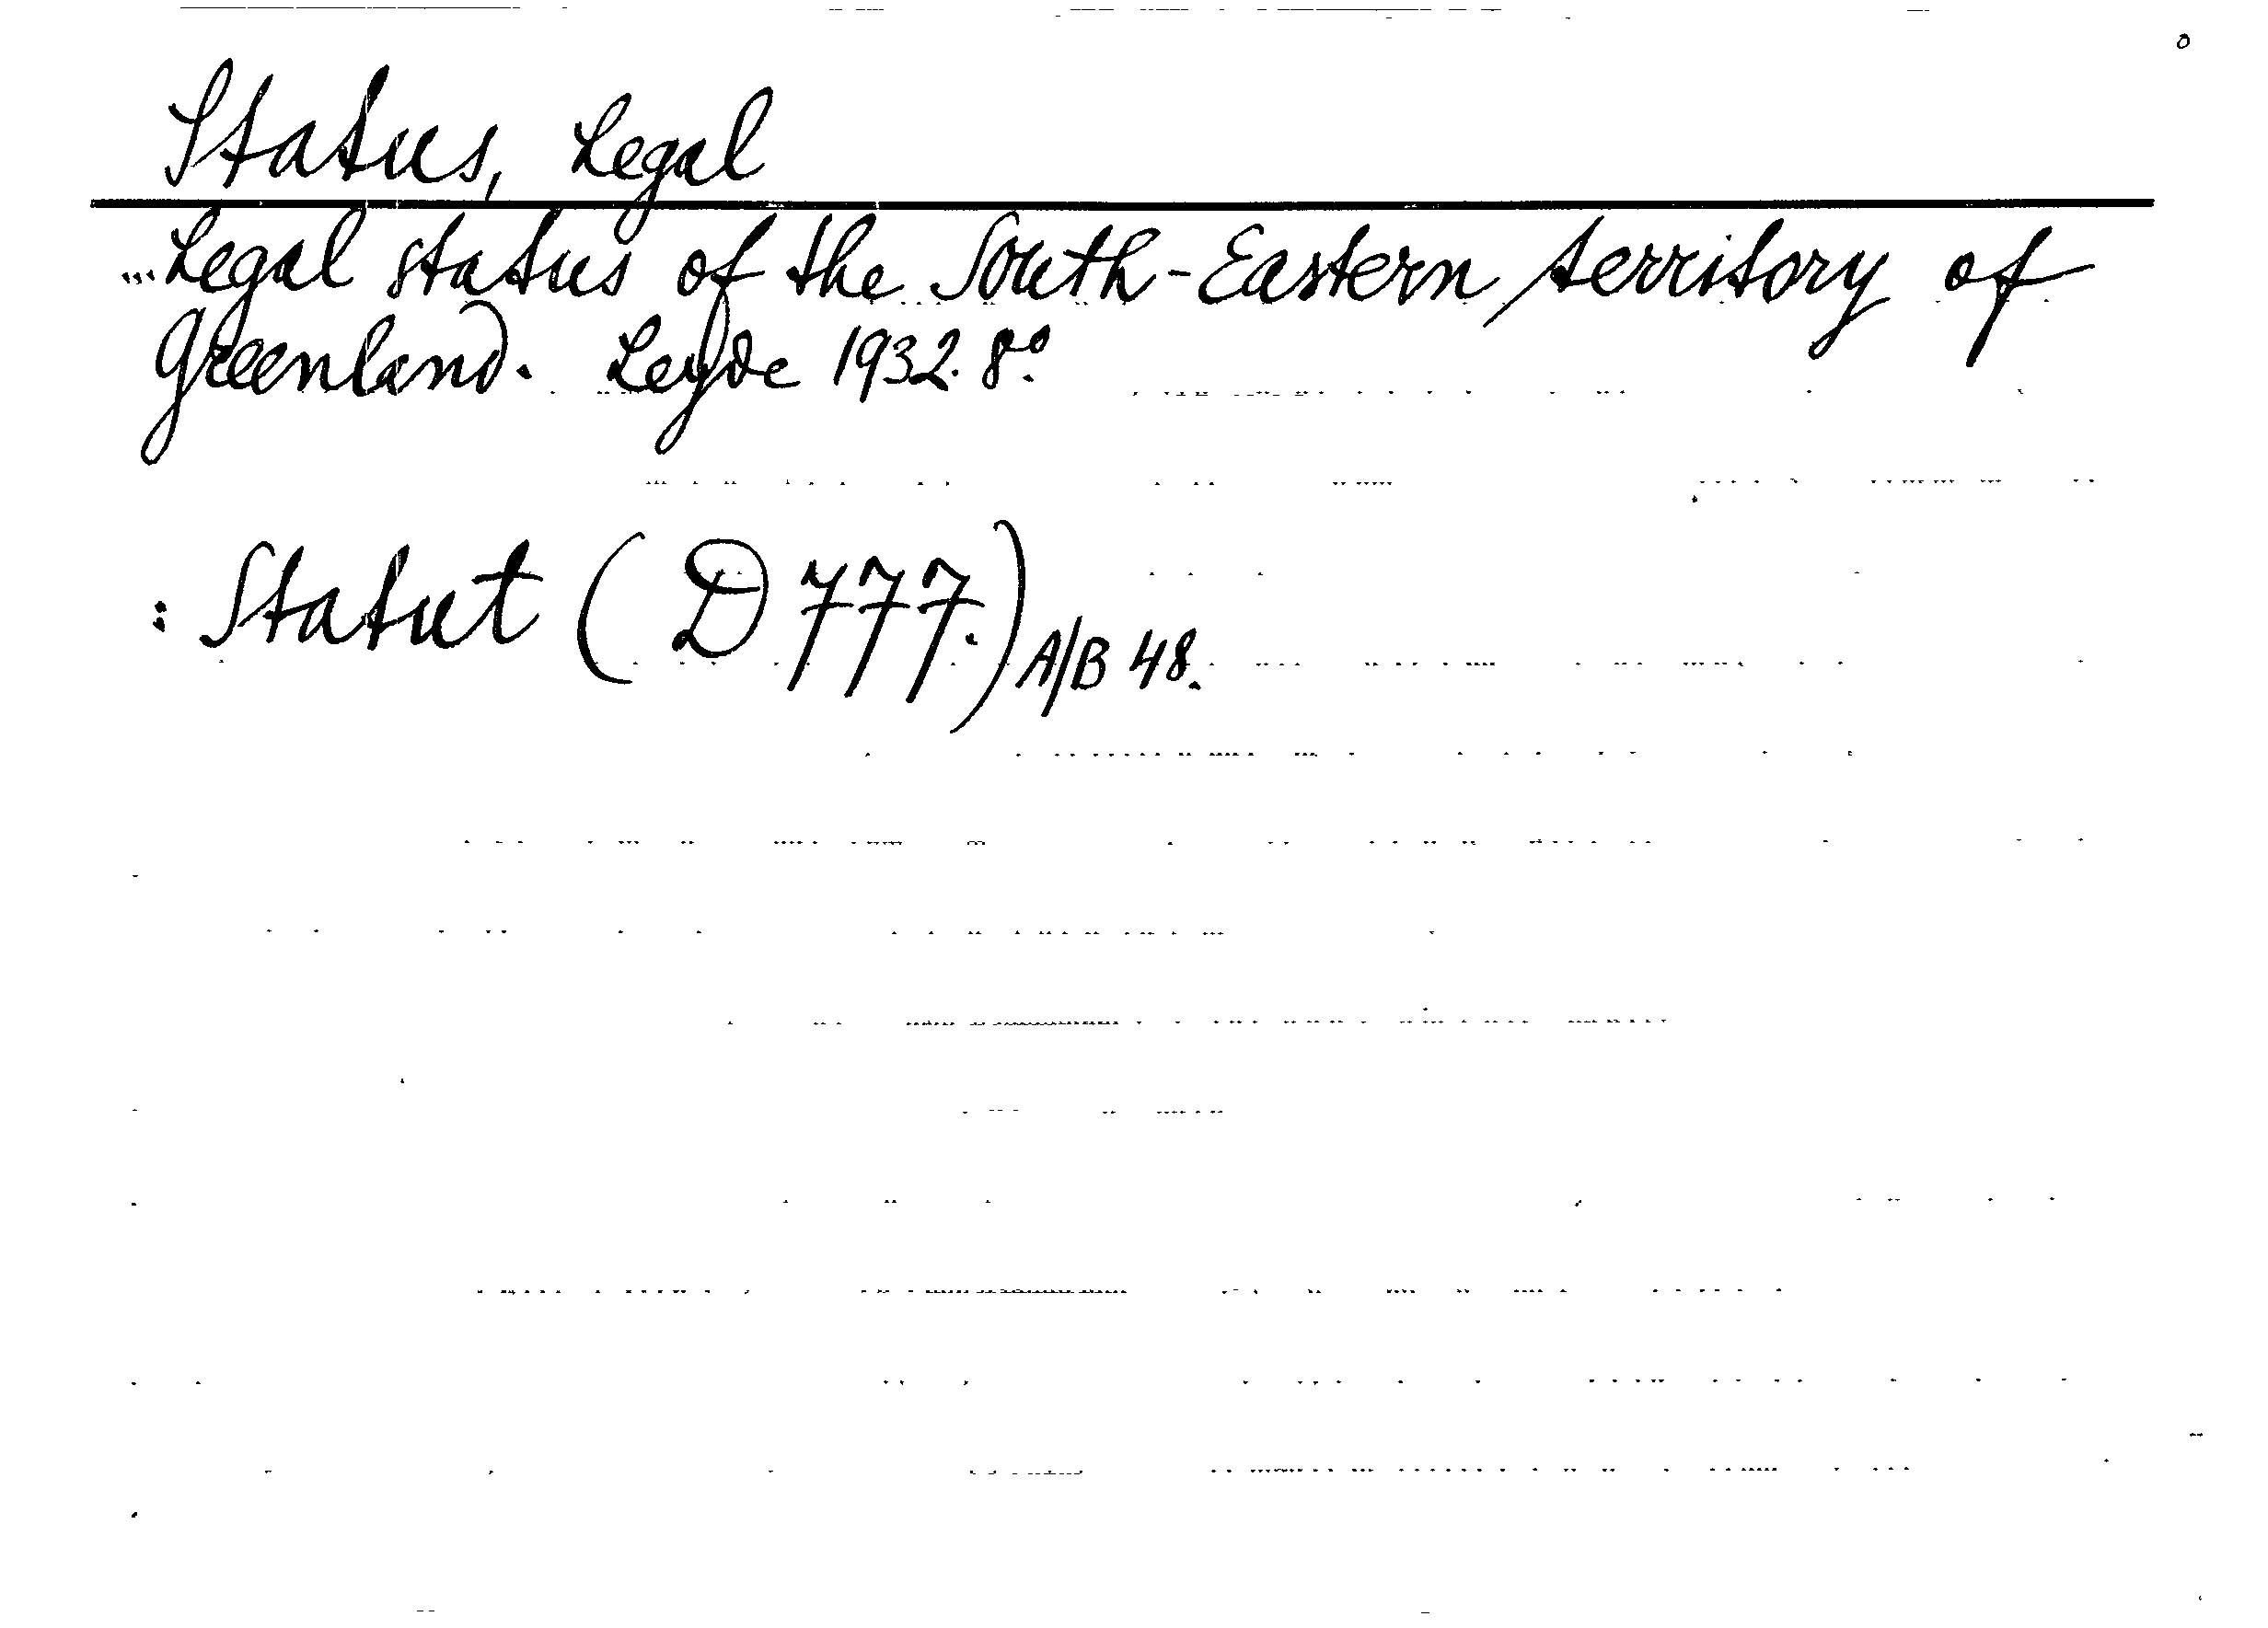 Status, Legal
... Legal status of the South-Eastern territory of
Greenland. Leyde 1932. 8º.
: Statut (D 777.) A/B 48.